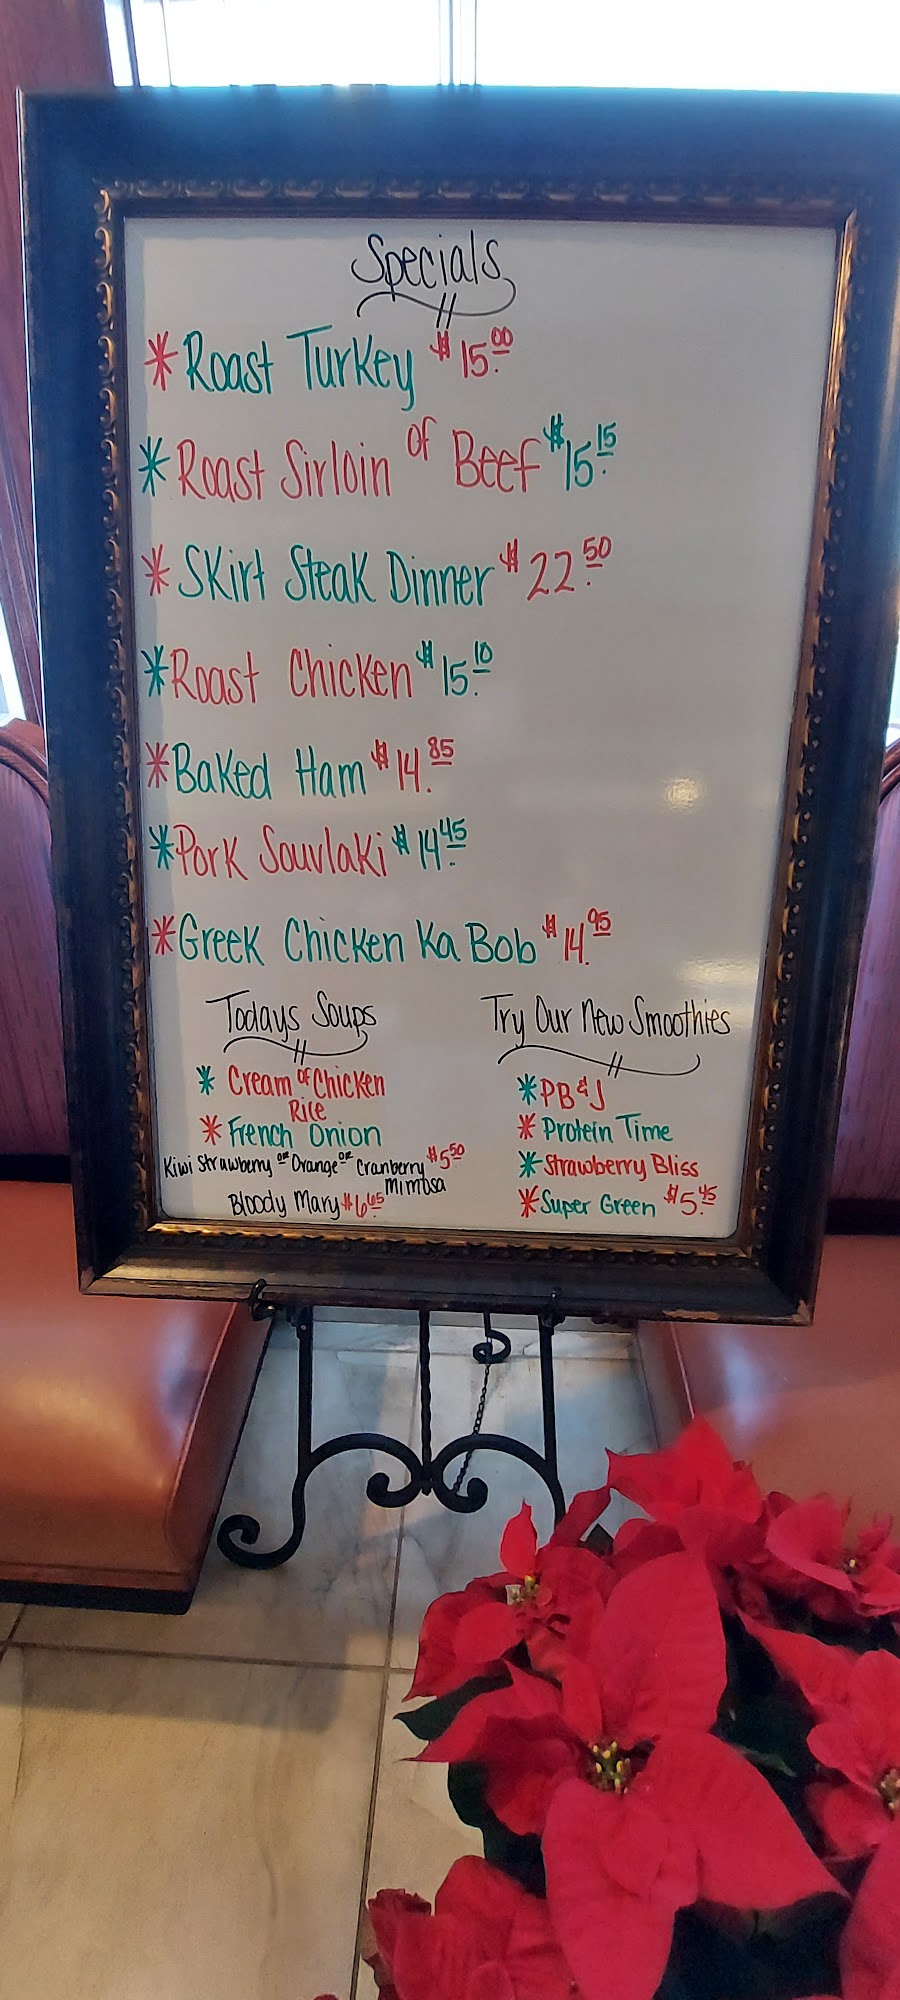 Specials
* Roast Turkey $15.00
* Roast Sirloin of Beef $15.15
* Skirt Steak Dinner $22.50
* Roast Chicken $15.10
* Baked Ham $14.85
* Pork Souvlaki $14.45
* Greek Chicken Ka Bob $14.95
Todays Soups
* Cream of Chicken
Rice
* French Onion
Kiwi Strawberry or Orange or Cranberry $5.50
mimosa
Bloody Mary $6.65
Try Our New Smoothies
* PB & J
* Protein Time
* Strawberry Bliss
* Super Green $5.45